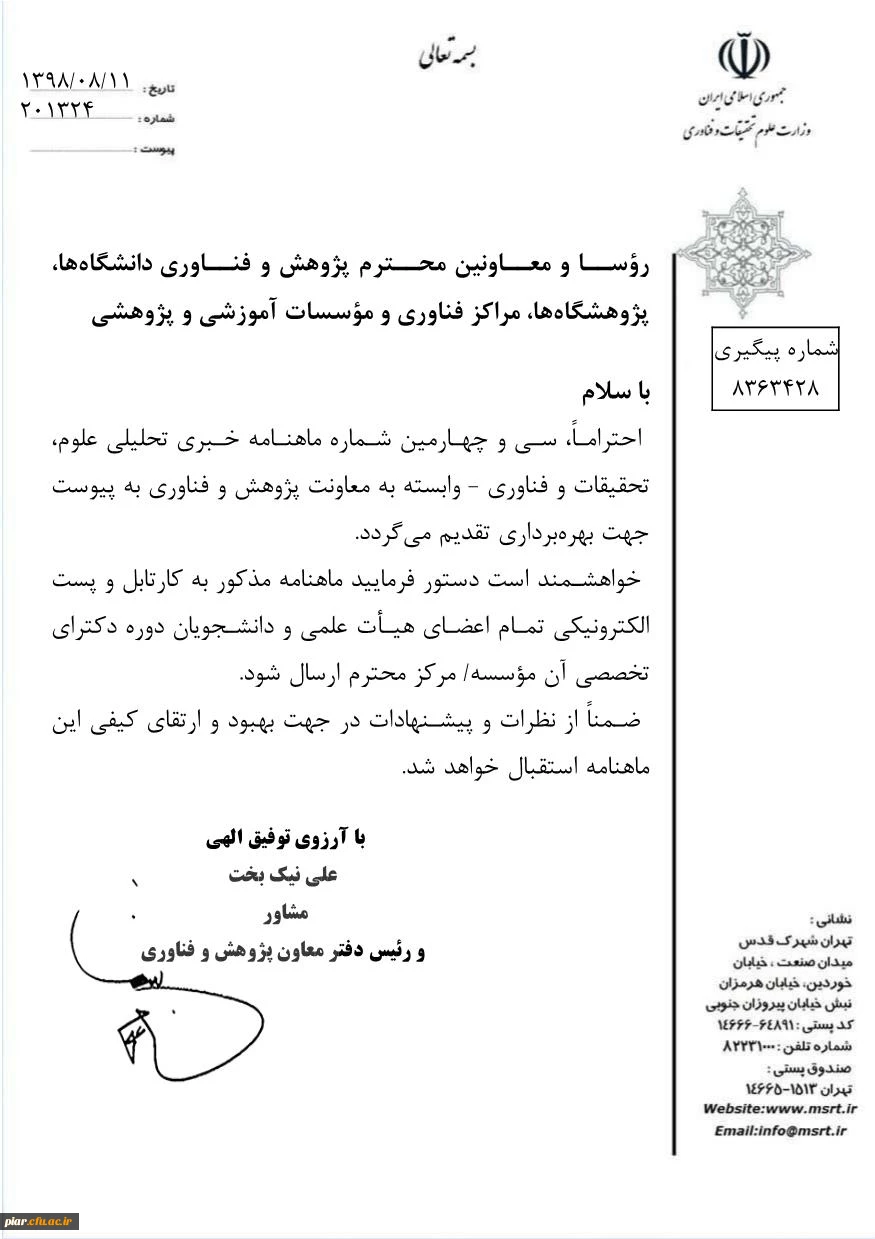 بسمه تعالی
جمهوری اسلامی ایران
وزارت علوم تحقیقات و فناوری
تاریخ : ۱۳۹۸/۰۸/۱۱
شماره : ۲۰۱۳۲۴
پیوست :
رؤسا و معاونین محترم پژوهش و فناوری دانشگاه‌ها،
پژوهشگاه‌ها، مراکز فناوری و مؤسسات آموزشی و پژوهشی
شماره پیگیری
۸۳۶۳۴۲۸
با سلام
احتراماً، سی و چهارمین شماره ماهنامه خبری تحلیلی علوم،
تحقیقات و فناوری - وابسته به معاونت پژوهش و فناوری به پیوست
جهت بهره‌برداری تقدیم می‌گردد.
خواهشمند است دستور فرمایید ماهنامه مذکور به کارتابل و پست
الکترونیکی تمام اعضای هیأت علمی و دانشجویان دوره دکترای
تخصصی آن مؤسسه/ مرکز محترم ارسال شود.
ضمناً از نظرات و پیشنهادات در جهت بهبود و ارتقای کیفی این
ماهنامه استقبال خواهد شد.
با آرزوی توفیق الهی
علی نیک بخت
مشاور
و رئیس دفتر معاون پژوهش و فناوری
نشانی :
تهران شهرک قدس
میدان صنعت ، خیابان
خوردین، خیابان هرمزان
نبش خیابان پیروزان جنوبی
کد پستی : ۶۴۸۹۱-۱۴۶۶۶
شماره تلفن : ۸۲۲۳۱۰۰۰
صندوق پستی :
تهران ۱۵۱۳-۱۴۶۶۵
Website:www.msrt.ir
Email:info@msrt.ir
piar.cfu.ac.ir